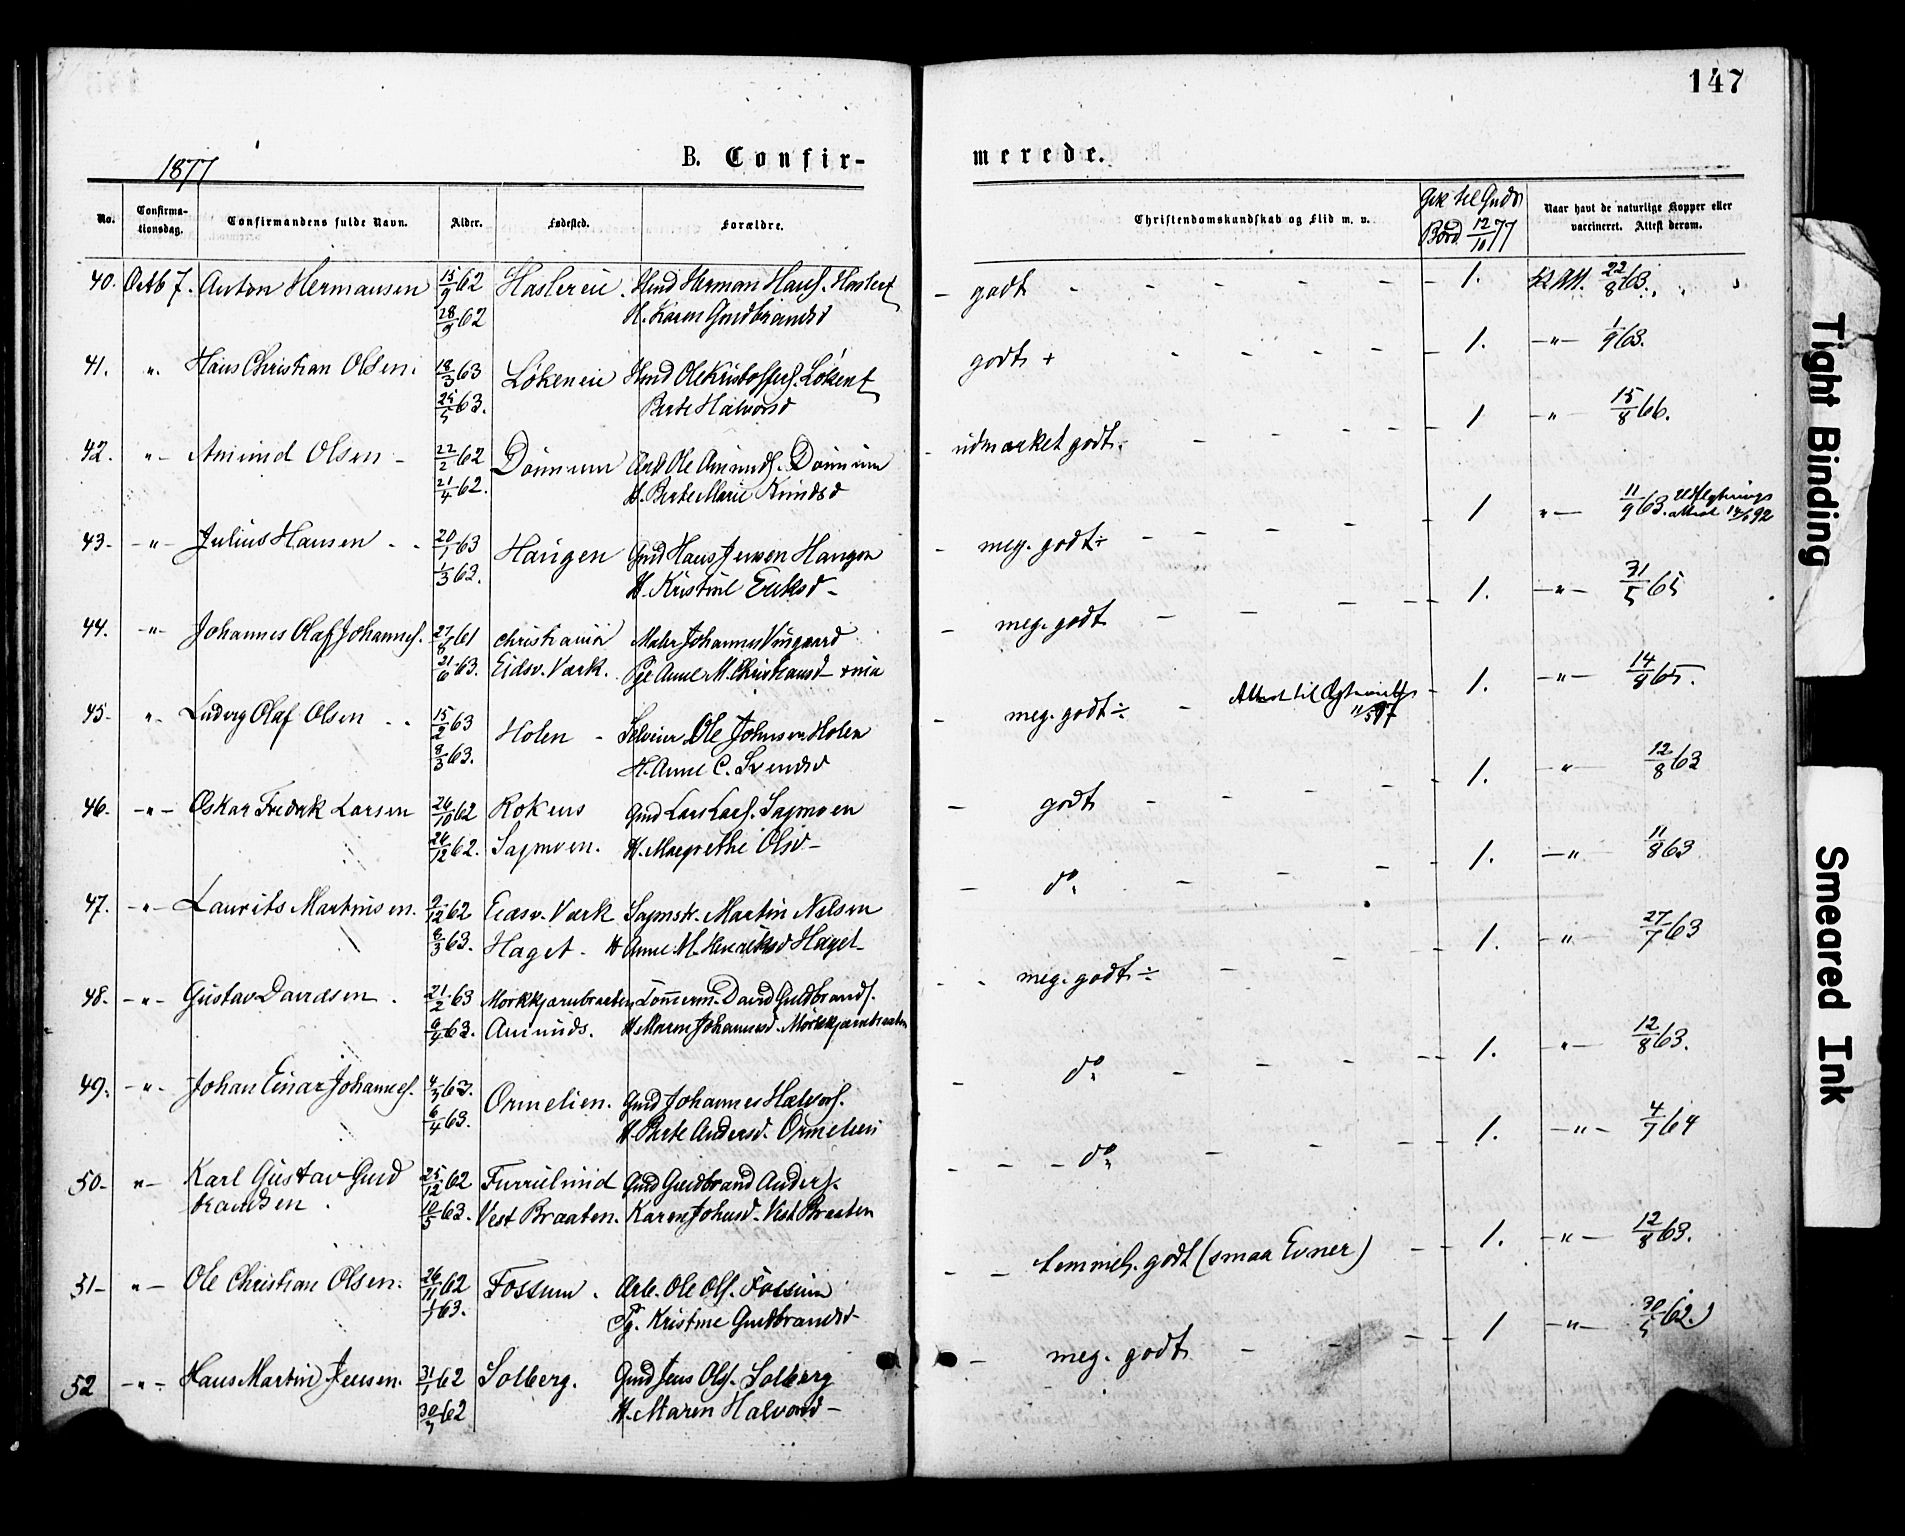 147
1877
B. Confir-
merede.
No.
Confirma-
tionsdag.
Confirmandens fulde Navn.
Alder.
Fødested.
Forældre.
Christendomskundskab og Flid m. v.
Gik til Guds
Bord 12/10 77
Naar havt de naturlige Kopper eller
vaccineret. Attest derom.
40. Octb 7. Anton Hermansen 15/9 62 Haslereie Hmd Herman Hans. Haslert godt 1. 22/8 63.
28/9 62 H. Karen Gudbrandsd
41. " Hans Christian Olsen. 18/3 63 Løkeneie Hmd Ole Kristoffers. Løkent godt + 1. " 1/9 63.
25/5 63. Berte Halvorsd
42. " Amund Olsen 22/2 62 Dønnum Arb Ole Amunds. Dønnum udmærket godt 1 " 15/8 66.
21/4 62. H. Berte Marie Knudsd
43 " Julius Hansen 20/1 63 Haugen Gmd Hans Jensen Haugen meg. godt ÷ 1 " 11/9 63. Udflytnings
1/3 63. H. Kristine Eriksd attest 92
44. " Johannes Olaf Johannes. 27/8 61 Christiania Maler Johannes Vingaard meg. godt 1. " 31/5 65
21/6 63. Eidsv. Værk. Pge Anne M. Christiansd
45 " Ludvig Olaf Olsen 15/2 63 Holen Selveier Ole Johnsen Holen meg. godt ÷ Attest til 1. " 14/8 65.
8/3 63. H. Anne C. Svendsd
46. " Oskar Fredrik Larsen 26/10 62 Rokens Gmd Lars Lars. Sagmoen godt 1. " 12/8 63
26/12 62. Sagmoen. H. Margrethe Olsd
47. " Laurits Martinsen. 2/12 62 Eidsv. Værk Sagmstr. Martin Nilsen do 1. " 11/8 63
8/3 63. Haget H Anne M. Henriksd Haget
48. " Gustav Davidsen. 21/2 63 Mørkkjærnbraaten Tømmerm. David Guldbrands. meg. godt ÷ 1. " 27/7 63
6/4 63. Amunds. H Maren Johannesd. Mørkkjærnbraaten
49. " Johan Einar Johannes. 4/3 63. Ormelien. Gmd Johannes Halvors. do 1. " 12/8 63.
6/4 63. H. Berte Andersd. Ormelien
50 " Karl Gustav Gud 25/12 62 Furrulund Gmd Gudbrand Anders. do 1. " 4/7 64
brandsen. 10/5 63. Vest Braaten. Karen Johnsd. Vest Braaten
51 " Ole Christian Olsen. 26/11 62 Fossum. Arb. Ole Ols. Fossum temmel. godt (smaa Evner) 1. " 12/8 63.
1/1 63. Pg. Kristine Gudbrandsd
52 " Hans Martin Jensen. 31/1 62 Solberg. Gmd Jens Ols. Solberg meg. godt 1 " 30/5 62.
30/3 62 H. Maren Halvorsd
Tight Binding
Smeared Ink